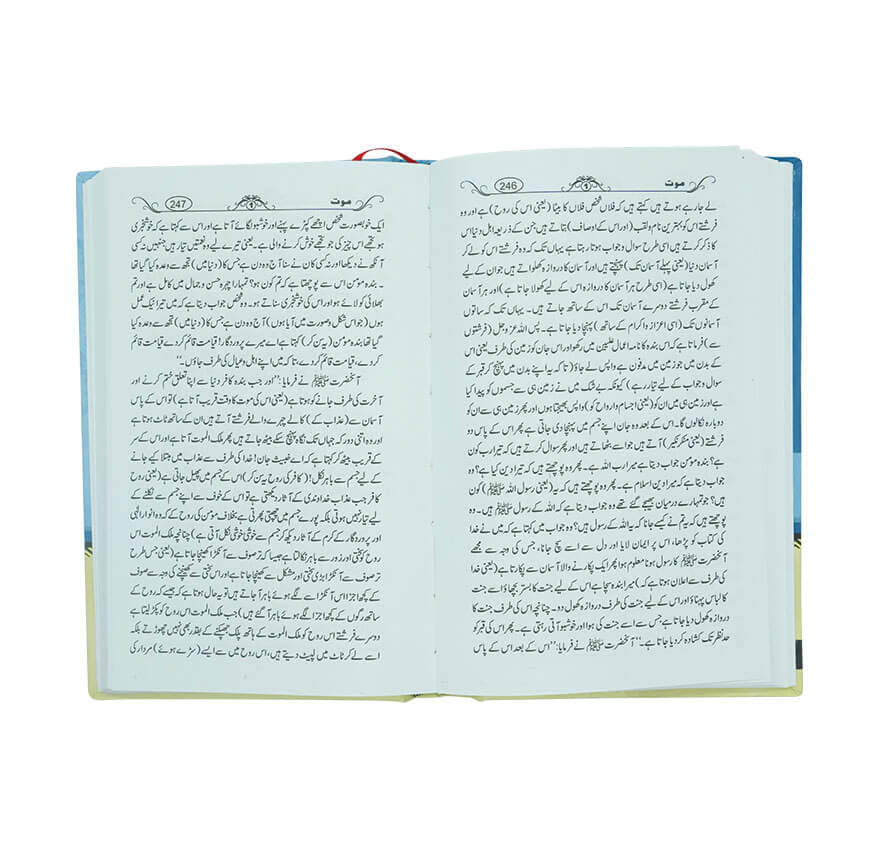 موت 1 246
لے جارہے ہوتے ہیں کہتے ہیں کہ فلاں شخص فلاں کا بیٹا (یعنی اس کی روح) ہے اور وہ
فرشتے اس کو بہترین نام و لقب (اور اس کے اوصاف) بتاتے ہیں جن کے ذریعہ اہل دنیا اس
کا ذکر کرتے ہیں اسی طرح سوال و جواب ہوتا رہتا ہے یہاں تک کہ وہ فرشتے اس کو لے کر
آسمان دنیا (یعنی پہلے آسمان تک) پہنچتے ہیں اور آسمان کا دروازہ کھلواتے ہیں جو ان کے لیے
کھول دیا جاتا ہے (اسی طرح ہر آسمان کا دروازہ اس کے لیے کھولا جاتا ہے) اور ہر آسمان
کے مقرب فرشتے دوسرے آسمان تک اس کے ساتھ جاتے ہیں۔ یہاں تک کہ ساتوں
آسمانوں تک (اسی اعزاز و اکرام کے ساتھ) پہنچا دیا جاتا ہے۔ پس اللہ عز و جل (فرشتوں
سے) فرماتا ہے کہ اس بندہ کا نامہ اعمال علیین میں رکھو اور اس جان کو زمین کی طرف یعنی اس
کے بدن میں جو زمین میں مدفون ہے واپس لے جاؤ (تاکہ یہ اپنے بدن میں پہنچ کر قبر کے
سوال و جواب کے لیے تیار رہے) کیونکہ بے شک میں نے زمین ہی سے جسموں کو پیدا کیا
ہے اور زمین ہی میں ان کو (یعنی اجسام و ارواح کو) واپس بھیجتا ہوں اور پھر زمین ہی سے ان کو
دوبارہ نکالوں گا۔ اس کے بعد وہ جان اپنے جسم میں پہنچا دی جاتی ہے پھر اس کے پاس دو
فرشتے (یعنی منکر نکیر) آتے ہیں جو اسے بٹھاتے ہیں اور پھر سوال کرتے ہیں کہ تیرا رب کون
ہے؟ بندہ مومن جواب دیتا ہے میرا رب اللہ ہے۔ پھر وہ پوچھتے ہیں کہ تیرا دین کیا ہے؟ وہ
جواب دیتا ہے کہ میرا دین اسلام ہے۔ پھر وہ پوچھتے ہیں کہ یہ (یعنی رسول اللہ ﷺ) کون
ہیں؟ جو تمہارے درمیان بھیجے گئے تھے وہ جواب دیتا ہے کہ اللہ کے رسول ﷺ ہیں۔ وہ
پوچھتے ہیں کہ یہ تم نے کیسے جانا کہ یہ اللہ کے رسول ہیں؟ وہ جواب میں کہتا ہے کہ میں نے خدا
کی کتاب کو پڑھا، اس پر ایمان لایا اور دل سے اسے سچ جانا، جس کی وجہ سے مجھے
آنحضرت ﷺ کا رسول ہونا معلوم ہوا پھر ایک پکارنے والا آسمان سے پکارتا ہے (یعنی خدا
کی طرف سے اعلان ہوتا ہے کہ) میرا بندہ سچا ہے اس کے لیے جنت کا بستر بچھاؤ اسے جنت
کا لباس پہناؤ اور اس کے لیے جنت کی طرف دروازہ کھول دو۔ چنانچہ اس کی طرف جنت کا
دروازہ کھول دیا جاتا ہے جس سے اسے جنت کی ہوا اور خوشبو آتی رہتی ہے۔ پھر اس کی قبر کو
حد نظر تک کشادہ کر دیا جاتا ہے۔“ آنحضرت ﷺ نے فرمایا: ”اس کے بعد اس کے پاس
موت 1 247
ایک خوبصورت شخص اچھے کپڑے پہنے اور خوشبو لگائے آتا ہے اور اس سے کہتا ہے کہ خوشخبری
ہو تجھے اس چیز کی جو تجھے خوش کرنے والی ہے۔ یعنی تیرے لیے وہ نعمتیں تیار ہیں جنہیں نہ کسی
آنکھ نے دیکھا اور نہ کسی کان نے سنا آج وہ دن ہے جس کا (دنیا میں) تجھ سے وعدہ کیا گیا تھا
۔ بندہ مومن اس سے پوچھتا ہے کہ تم کون ہو؟ تمہارا چہرہ حسن و جمال میں کامل ہے اور تم
بھلائی کو لائے ہو اور اس کی خوشخبری سناتے ہو۔ وہ شخص جواب دیتا ہے کہ میں تیرا نیک عمل
ہوں (جو اس شکل و صورت میں آیا ہوں) آج وہ دن ہے جس کا (دنیا میں) تجھ سے وعدہ کیا
گیا تھا بندہ مومن (یہ سن کر) کہتا ہے اے میرے پروردگار! قیامت قائم کر دے قیامت قائم
کر دے، قیامت قائم کر دے، تاکہ میں اپنے اہل و عیال کی طرف جاؤں۔“
آنحضرت ﷺ نے فرمایا: ”اور جب بندہ کافر دنیا سے اپنا تعلق ختم کرنے اور
آخرت کی طرف جانے کو ہوتا ہے (یعنی اس کی موت کا وقت قریب آتا ہے) تو اس کے پاس
آسمان سے (عذاب کے) کالے چہرے والے فرشتے آتے ہیں ان کے ساتھ ٹاٹ ہوتا ہے
اور وہ اتنی دور کہ جہاں تک نگاہ پہنچ سکے بیٹھ جاتے ہیں پھر ملک الموت آتا ہے اور اس کے سر
کے قریب بیٹھ کر کہتا ہے کہ اے خبیث جان! خدا کی طرف سے عذاب میں مبتلا کیے جانے
کے لیے جسم سے باہر نکل! (کافر کی روح یہ سن کر) اس کے جسم میں پھیل جاتی ہے (یعنی روح
کافر جب عذاب خداوندی کے آثار دیکھتی ہے تو اس کے خوف سے اپنے جسم سے نکلنے کے
لیے تیار نہیں ہوتی بلکہ پورے جسم میں چھپتی پھرتی ہے بخلاف مومن کی روح کے کہ وہ انوار الٰہی
اور پروردگار کے کرم کے آثار دیکھ کر جسم سے خوشی خوشی نکل آتی ہے) چنانچہ ملک الموت اس
روح کو سختی اور زور سے باہر نکالتا ہے جیسا کہ تر صوف سے آنکڑا کھینچا جاتا ہے (یعنی جس طرح
تر صوف سے آنکڑا بڑی سختی اور مشکل سے کھینچا جاتا ہے اور اس سختی سے کھینچنے کی وجہ سے صوف
کے کچھ اجزا اس آنکڑا سے لگے ہوئے باہر آجاتے ہیں تو یہ حال ہوتا ہے کہ جیسے کہ روح کے
ساتھ رگوں کے کچھ اجزا لگے ہوئے باہر آگئے ہیں) جب ملک الموت اس روح کو پکڑ لیتا ہے
دوسرے فرشتے اس روح کو ملک الموت کے ہاتھ پلک جھپکنے کے بقدر بھی نہیں چھوڑتے بلکہ
اسے لے کر ٹاٹ میں لپیٹ دیتے ہیں، اس روح میں سے ایسے (سڑے ہوئے) مردار کی